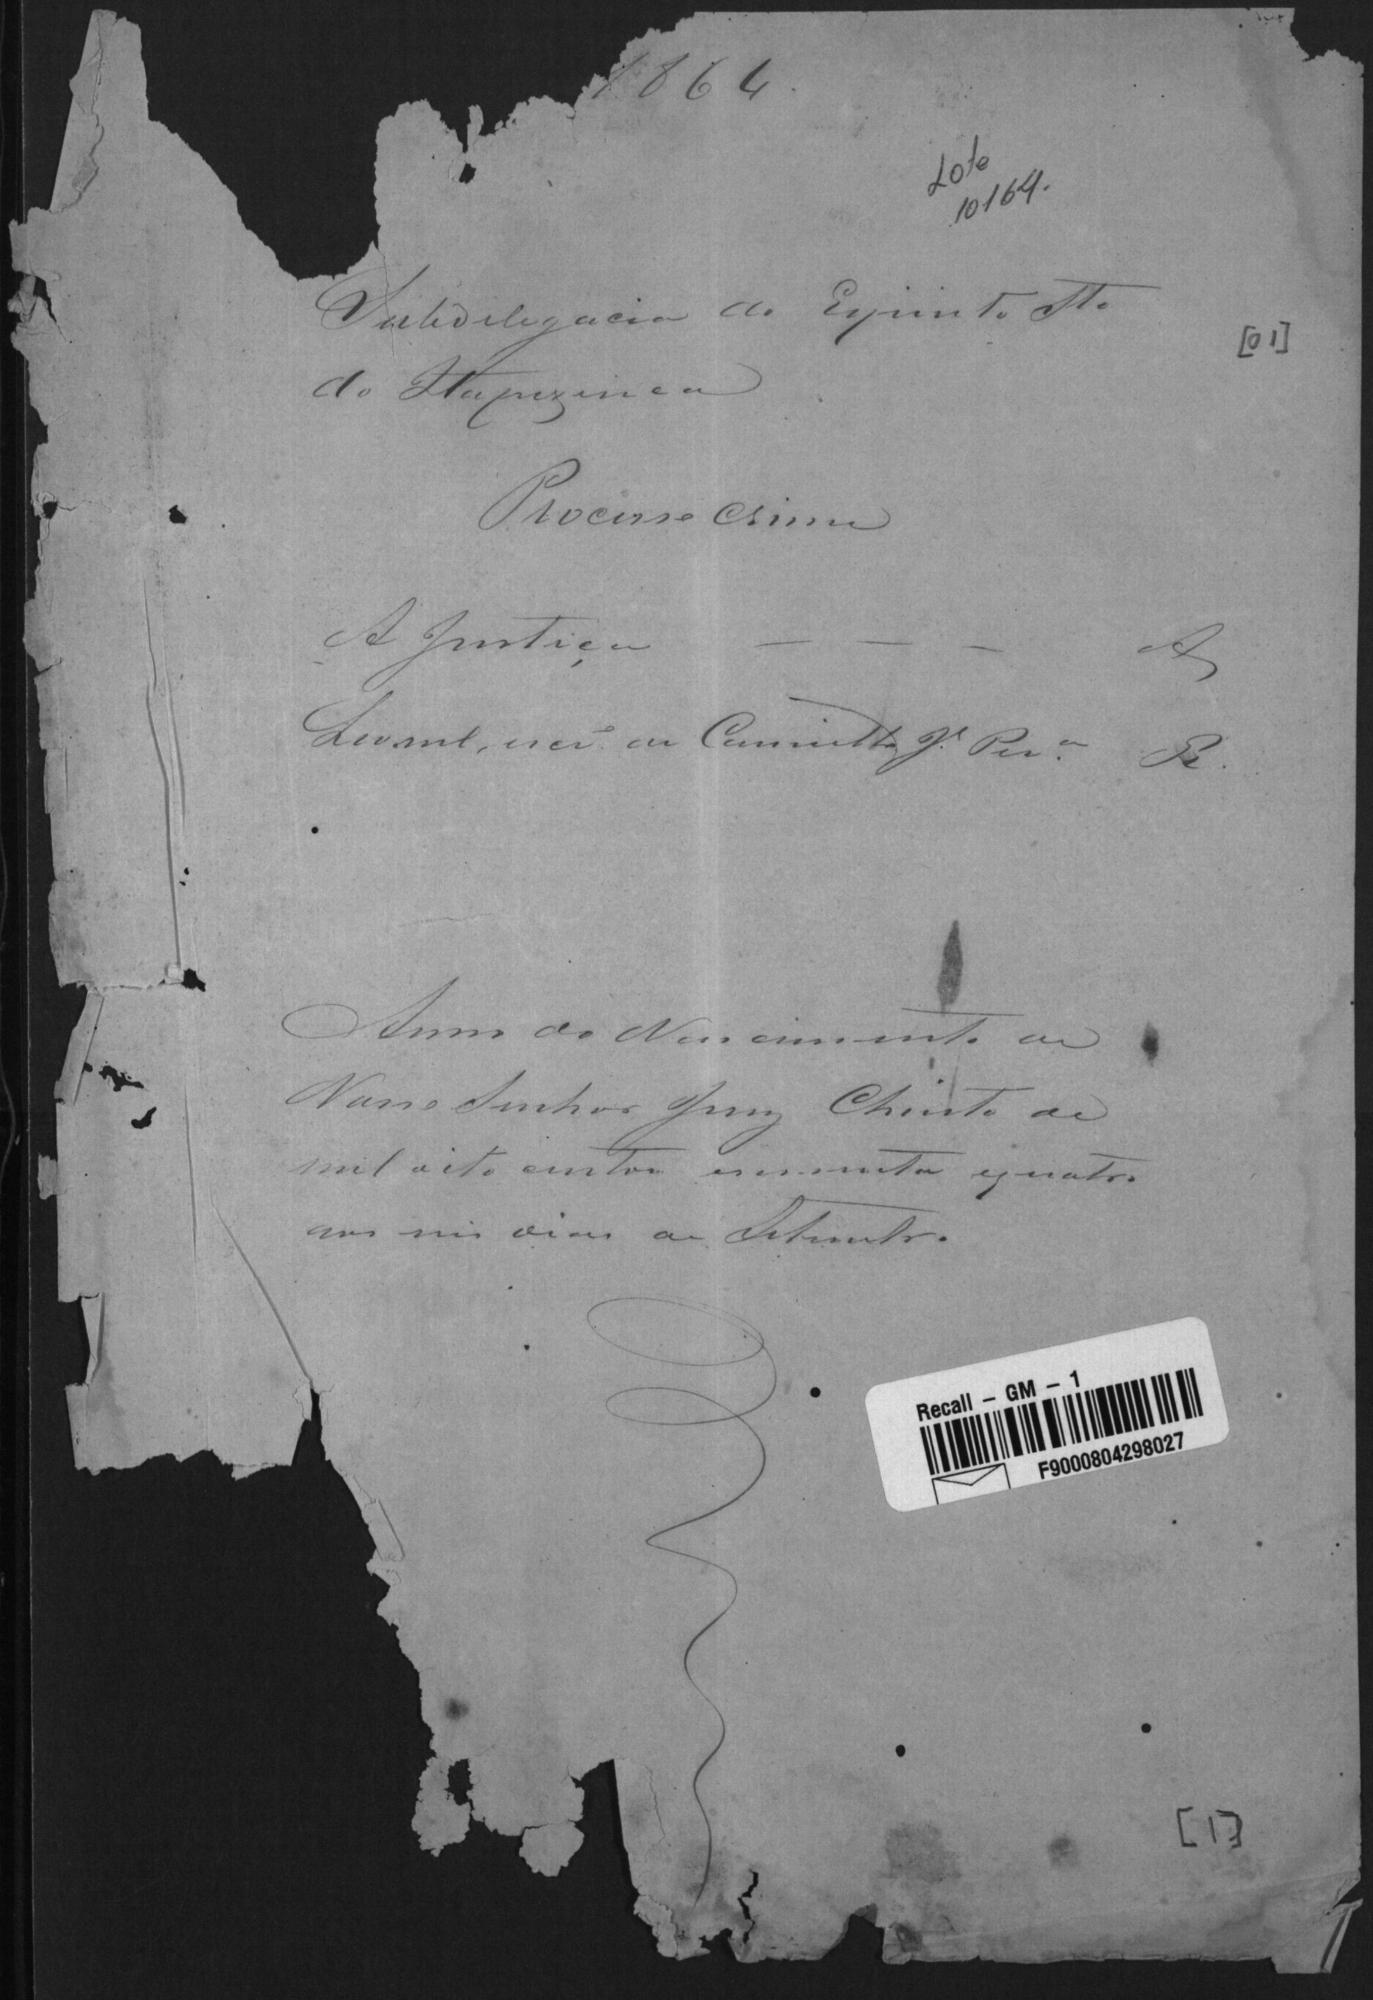 1864.
Lote
10164.
Subdelegacia do Espirito Sto
[01]
do Itapezirica
Processo Crime
A Justiça — — — A
Leonel, escº de Camillo Jé Perª R.
Anno do Nascimento de
Nosso Senhor Jesuz Christo de
mil oito centos essenta equatro
aos seis dias de Setembro.
Recall – GM – 1
F9000804298027
[1]